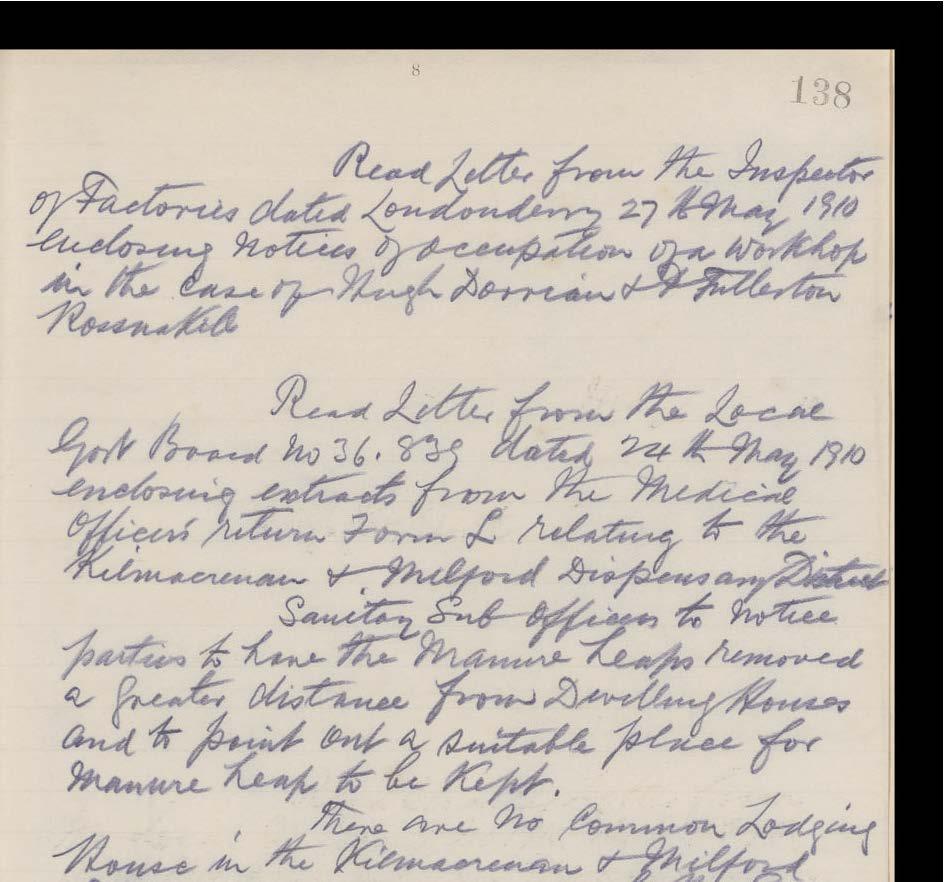 8
138
Read Letter from the Inspector
of Factories dated Londonderry 27th May 1910
enclosing Notices of occupation of a Workhop
in the case of Hugh Dorrian & Fullerton
Rossnakill
Read Letter from the Local
Govt Board No 36.839 dated 24th May 1910
enclosing extracts from the Medical
Officers return Form L relating to the
Kilmacrenan & Milford Dispensary District
Sanitary Sub Officers to Notice
parties to have the Manure heaps removed
a greater distance from Dwelling Houses
and to point out a suitable place for
Manure heap to be Kept.
There are No Common Lodging
House in the Kilmacrenan & Milford